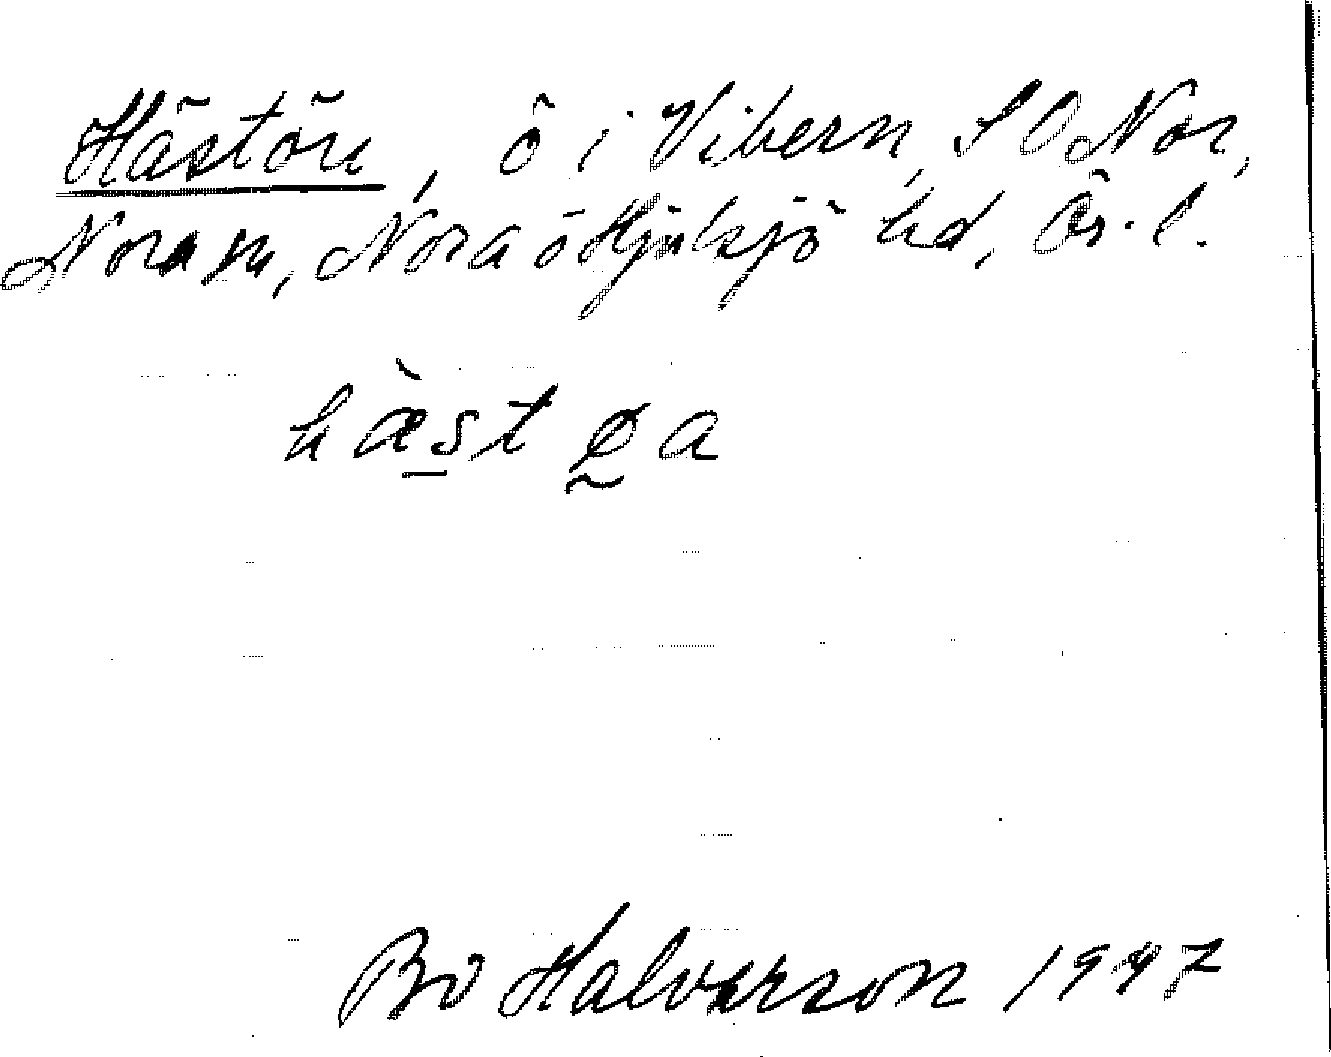 Hästön, ö i Vibern, S O Nor,
Nora sn, Nora ö Hjulsjö hd, Ör. l.
hæ̀st ø̰a
Bo Halvarson 1947